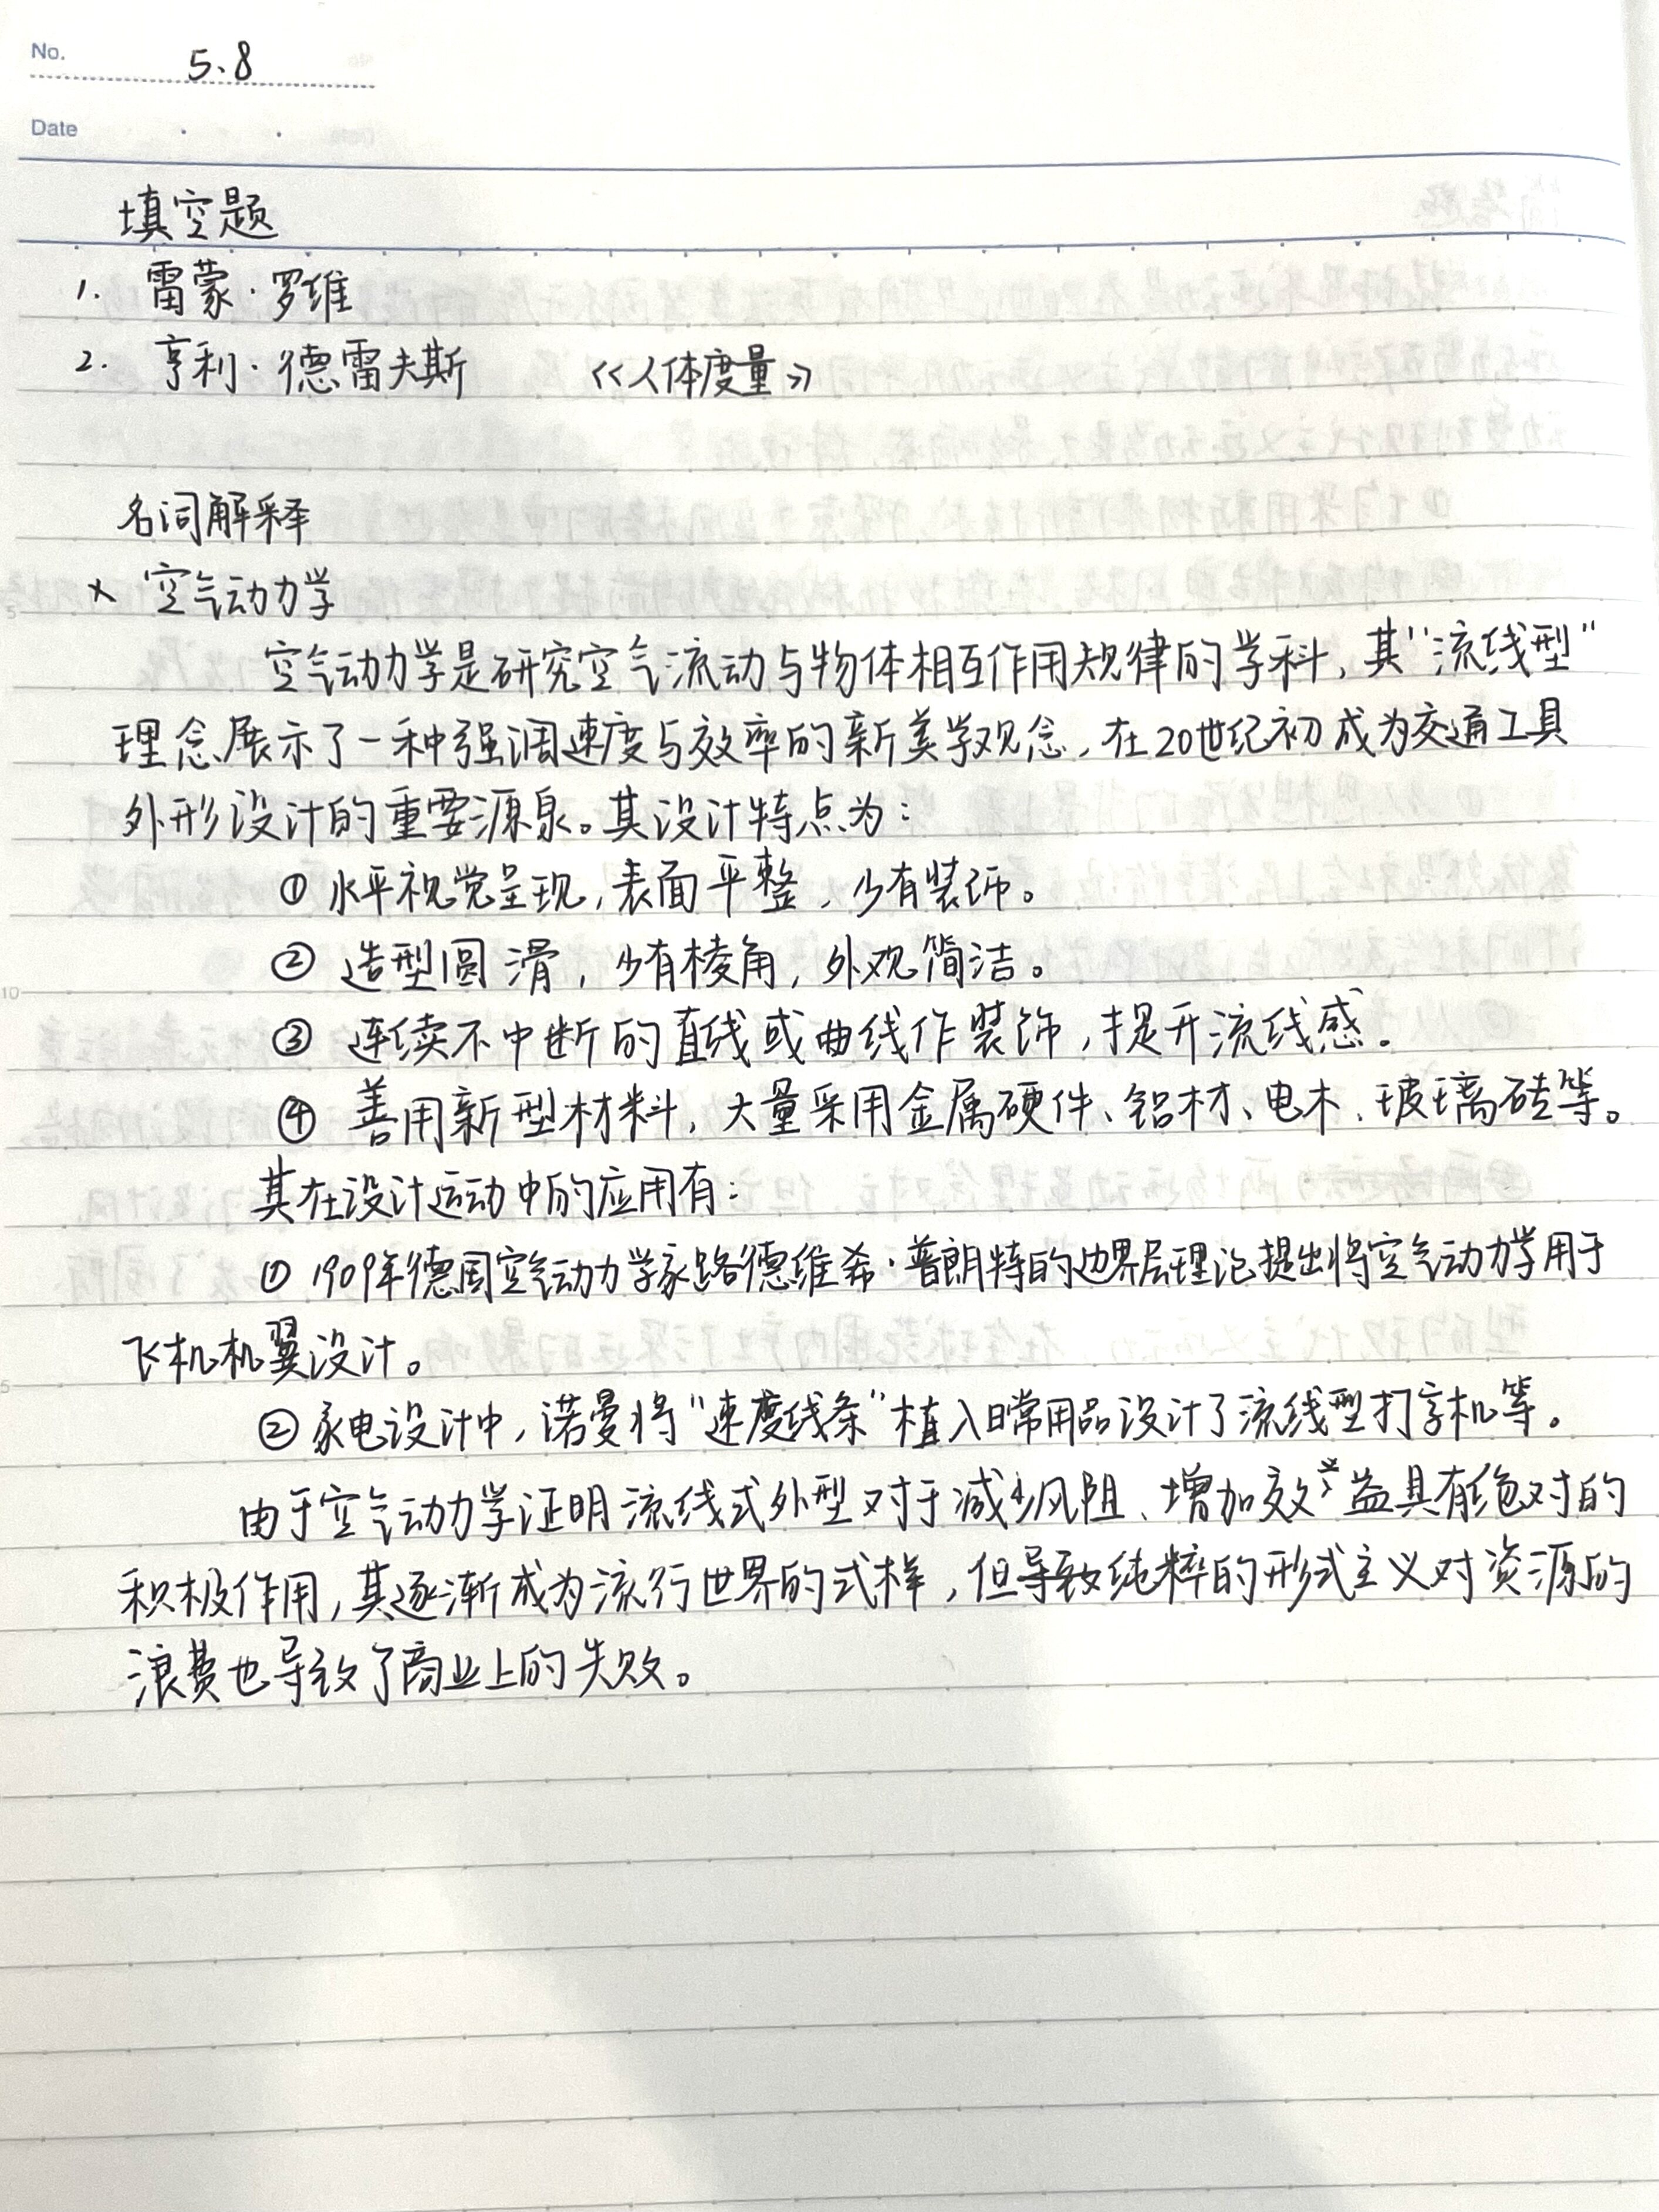 No. 5.8
Date
填空题
1. 雷蒙·罗维
2. 亨利·德雷夫斯 《人体度量》
名词解释
× 空气动力学
空气动力学是研究空气流动与物体相互作用规律的学科，其"流线型"
理念展示了一种强调速度与效率的新美学观念，在20世纪初成为交通工具
外形设计的重要源泉。其设计特点为：
① 水平视觉呈现，表面平整，少有装饰。
② 造型圆滑，少有棱角，外观简洁。
③ 连续不中断的直线或曲线作装饰，提升流线感。
④ 善用新型材料，大量采用金属硬件、铝材、电木、玻璃砖等。
其在设计运动中的应用有：
① 1909年德国空气动力学家路德维希·普朗特的边界层理论提出将空气动力学用于
飞机机翼设计。
② 家电设计中，诺曼将"速度线条"植入日常用品设计了流线型打字机等。
由于空气动力学证明流线式外型对于减少风阻、增加效益具有绝对的
积极作用，其逐渐成为流行世界的式样，但导致纯粹的形式主义对资源的
浪费也导致了商业上的失败。